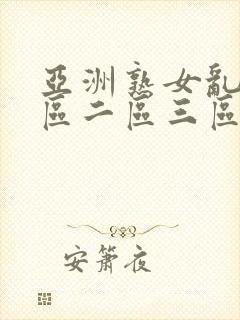 亞洲熟女亂
區二區三區
安簫夜